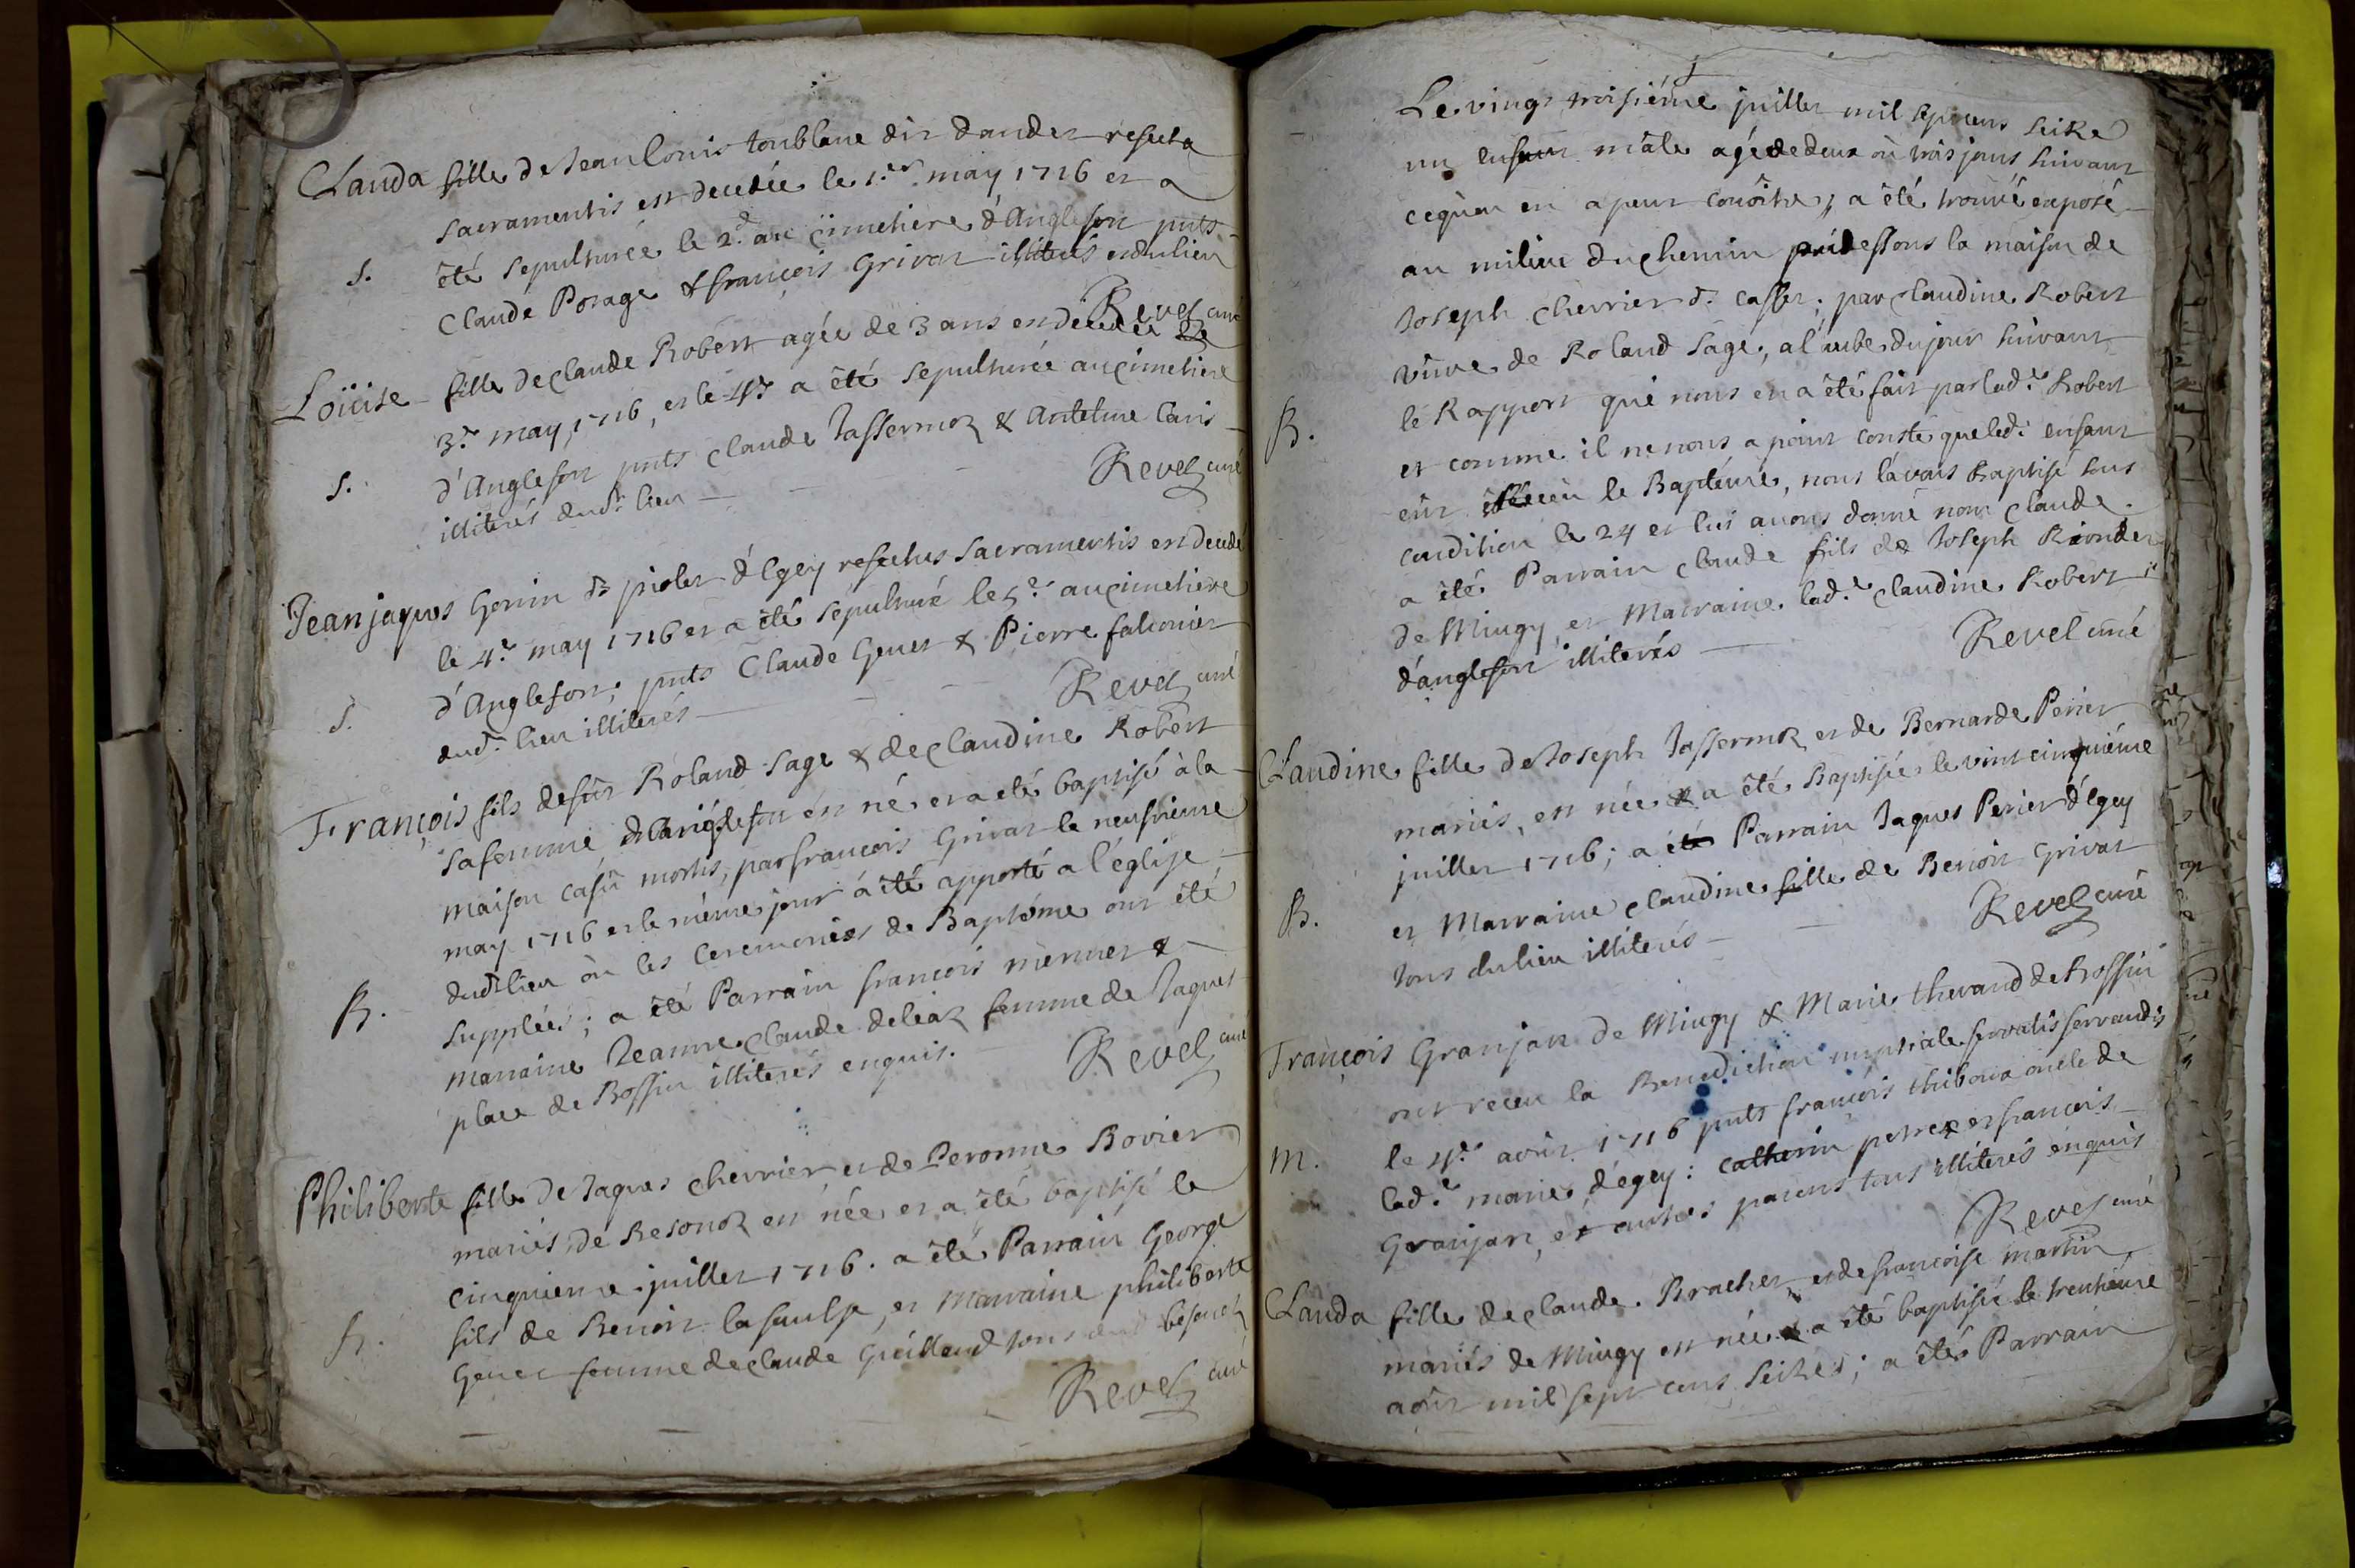 Clauda fille de Jean Louis toublanc dit dandet refecta
sacramentis est decedée le 1.er may 1716 et a
S. été sepulturée le 2.d au cimetiere d'Anglefort pnts
Claude Porage & françois Grivat illiterés dudit lieu
Revel curé
Loüise fille de Claude Robert agée de 3 ans est decedée le
3.e may 1716, et le 4.e a été sepulturée au cimetiere
S. d'Anglefort pnts Claude Jassermoz & Antelme
illiterés dud.t lieu
Revel curé
Jean jaques Genin dt piolet d'Egey refectus sacramentis est decedé
le 4.e may 1716 et a été sepulturé le 5.e au cimetiere
S. d'Anglefort; pnts Claude Genet & Pierre falconier
dud.t lieu illiterés
Revel curé
François fils de fût Roland Sage & de Claudine Robert
sa femme d'anglefort est né et a eté baptisé à la
maison casû mortis, par françois Grivat le neufvieme
may 1716 et le même jour a été apporté a l'église
dudt lieu où les ceremonies de Baptême ont été
B. supplées; a été Parrain françois mermet &
marraine Jeanne Claude deliaz femme de Jaques
place de Bossin illiterés enquis.
Revel curé
Philiberte fille de Jaques Cherrier, et de Peronne Bovier
mariés de Besonoz est née et a été baptisé le
cinquieme juillet 1716. a été Parrain George
B. fils de Benoit la faulse, et marraine philiberte
Genet femme de Claude Guilland tous dud besonoz
Revel curé
Le vingt troisiéme juillet mil sept cens seize
un enfant mâle agé de deux où trois jours suivant
ce qu'on en a peut conoître, a été trouvé exposé
au milieu du chemin pardessous la maison de
Joseph Cherrier dt. Casset; par Claudine Robert
veuve de Roland Sage, a l'aube du jour suivant
B. le Rapport qui nous en a été fait par lad.e Robert
et comme il ne nous a point consté que led.t enfant
eût receu le Baptême, nous l'avons Baptisé sous
condition le 24 et lui avons donné nom Claude.
a été Parrain Claude fils de Joseph Riondet
de Mingy, et Marraine lad.e Claudine Robert
d'anglefort illiterés
Revel curé
Claudine fille de Joseph Jassermoz et de Bernarde Perier
mariés, est née & a été Baptisée le vint cinquiéme
juillet 1716; a été Parrain Jaques Perier d'Egey
B. et Marraine Claudine fille de Benoit Grivat
tous du lieu illiterés
Revel curé
François Granjan de Mingy & Marie thevand de Bossin
ont receu la Benediction nuptiale servatis servandis
M. le 4.e août 1716 pnts françois thiboux oncle de
lad.e marie, d'égey: Catherin petrex et françois
Granjan, et autres parens tous illiterés enquis
Revel curé
Clauda fille de Claude Brachet, et de françoise martin
mariés de Mingy est née & a été baptisée le trentiéme
août mil sept cens seize; a été Parrain